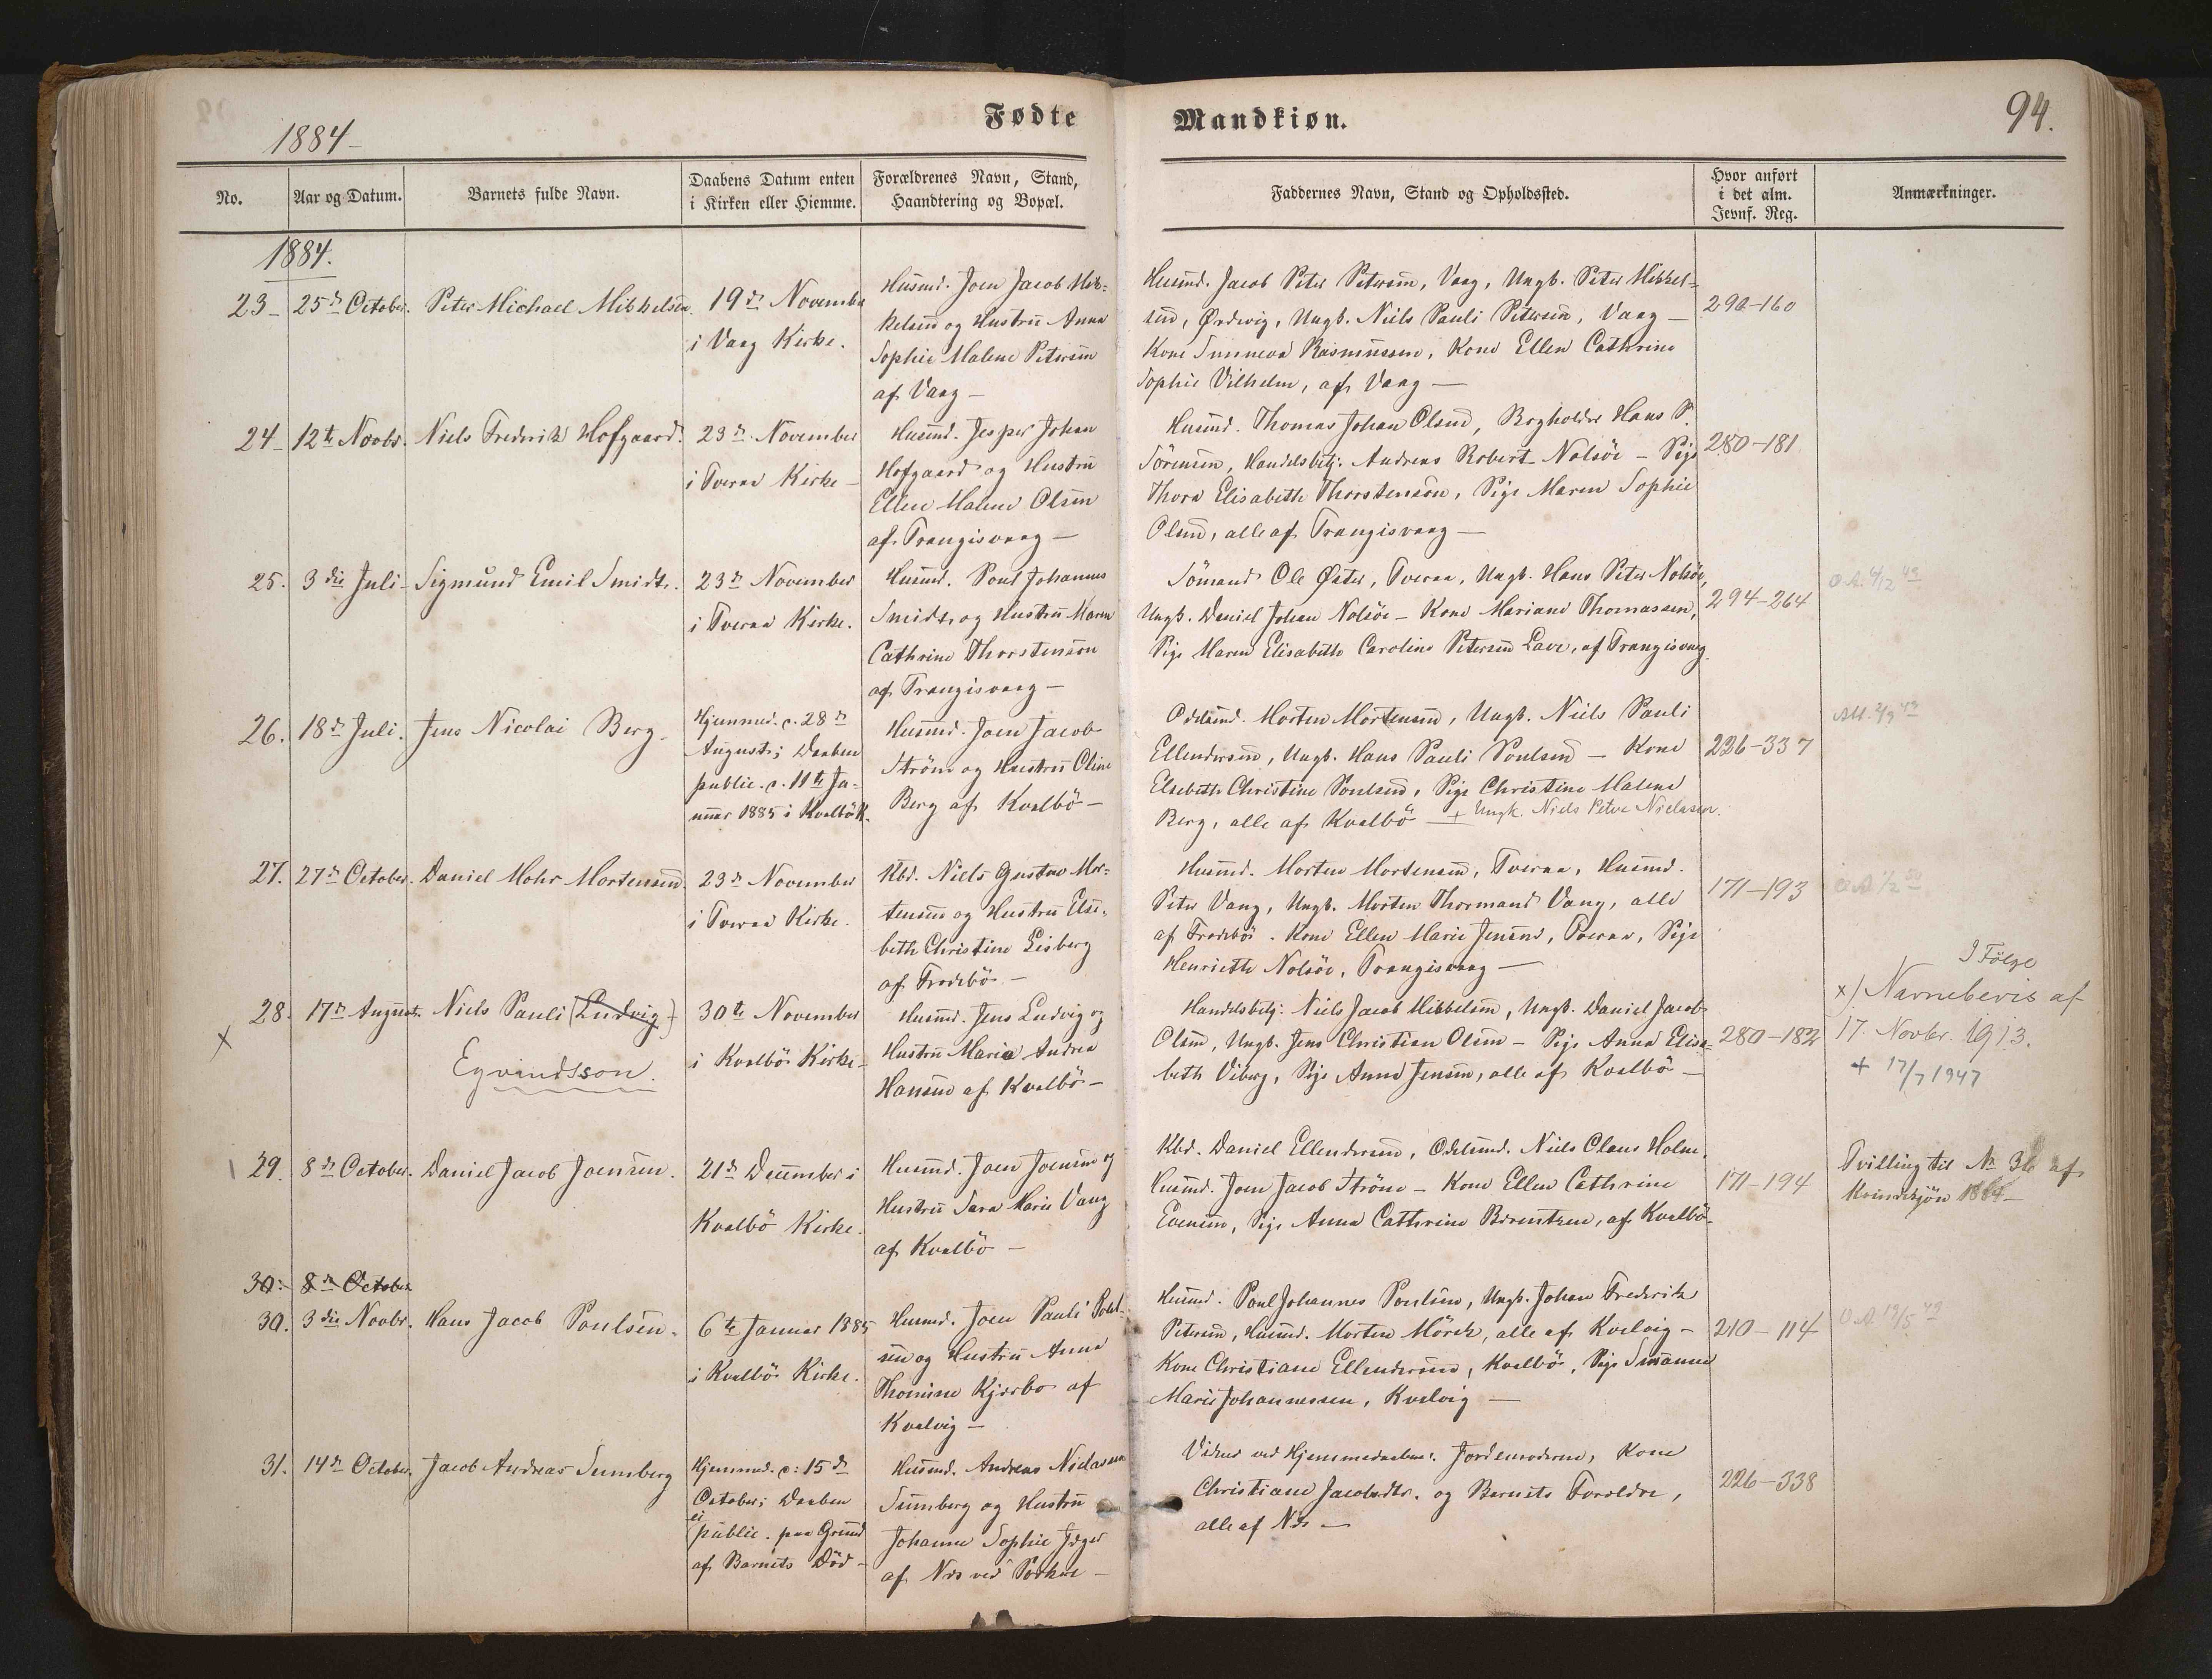 1884-
Fødte
Mandkiøn.
94.
No.
Aar og Datum.
Barnets fulde Navn.
Daabens Datum enten
i Kirken eller Hiemme.
Forældrenes Navn, Stand,
Haandtering og Bopæl.
Faddernes Navn, Stand og Opholdssted.
Hvor anført
i det alm.
Jevnf. Reg.
Anmærkninger.
1884.
23- 25de October. Peter Michael Mikkelsen.
19de November
i Vaag Kirke.
Husmd. Joen Jacob Mik-
kelsen og Hustru Anna
Sophie Malene Petersen
af Vaag -
Husmd. Jacob Peter Petersen, Vaag, Ungk. Peter Mikkel-
sen, Ørdevig, Ungk. Niels Pauli Petersen, Vaag -
Kone Sunneva Rasmussen, Kone Ellen Cathrine
Sophie Vilhelm, af Vaag -
290-160
24- 12te Novbr. Niels Frederik Hofgaard.
23de November
i Tveraa Kirke -
Husmd. Jesper Johan
Hofgaard og Hustru
Ellen Malene Olsen
af Trangisvaag -
Husmd. Thomas Johan Olsen, Bogholder Hans P.
Sörensen, Handelsbetj. Andreas Robert Nolsöe - Pige
Thora Elisabeth Thorstensen, Pige Maren Sophie
Olsen, alle af Trangisvaag -
280-181
25. 3die Juli- Sigmund Emil Smidt.
23de November
i Tveraa Kirke.
Husmd. Poul Johannes
Smidt, og Hustru Maren
Cathrine Thorstensen
af Trangisvaag -
Sömand Ole Øster, Tveraa, Ungk. Hans Peter Nolsöe,
Ungk. Daniel Johan Nolsöe - Kone Mariane Thomassen,
Pige Maren Elisabeth Caroline Petersen Lave, af Trangisvaag.
294-264
26. 18de Juli. Jens Nicolai Berg.
Hjemmed. d. 28de
August; Daaben
public. d. 11te Ja-
nuar 1885 i Kvalbö K.
Husmd. Joen Jacob
Ström og Hustru Oline
Berg af Kvalbö -
Odelsmd. Morten Mortensen, Ungk. Niels Pauli
Ellendersen, Ungk. Hans Pauli Poulsen - Kone
Elsebeth Christine Poulsen, Pige Christine Malene
Berg, alle af Kvalbö - + Ungk. Niels Peter Nielassen.
226-337
27. 27de October. Daniel Mohr Mortensen.
23de November
i Tveraa Kirke.
Kbd. Niels Gustav Mor-
tensen og Hustru Else-
beth Christine Lisberg
af Frodebö -
Husmd. Morten Mortensen, Tveraa, Husmd.
Peter Vang, Ungk. Morten Thormand Vang, alle
af Frodebö. Kone Ellen Marie Jensen, Tveraa, Pige
Henriette Nolsöe, Trangisvaag -
171-193
28. 17de August. Niels Pauli (Ludvig)
x
Egvindsson.
30te November
i Kvalbö Kirke-
Husmd. Jens Ludvig og
Hustru Maria Andrea
Hansen af Kvalbö -
Handelsbetj. Niels Jacob Mikkelsen, Ungk. Daniel Jacob
Olsen, Ungk. Jens Christian Olsen - Pige Anna Elisa-
beth Viberg, Pige Anna Jensen, alle af Kvalbö -
280-182
I Følge
x) Navnebevis af
17. Novbr. 1913.
+ 17/7 1947
29. 8de October. Daniel Jacob Joensen.
21de December i
Kvalbö Kirke.
Husmd. Joen Joensen og
Hustru Sara Marie Vang
af Kvalbö -
Kbd. Daniel Ellendersen, Odelsmd. Niels Claus Holm,
Husmd. Joen Jacob Ström - Kone Ellen Cathrine
Evensen, Pige Anna Cathrine Berentzen, af Kvalbö-
171-194
Tvilling til No 36 af
Kvindekjön 1884-
30. 8de October
30. 3die Novbr. Hans Jacob Poulsen.
6te Januar 1885
i Kvalbö Kirke.
Husmd. Joen Pauli Poul-
sen og Hustru Anna
Thomine Kjærbo af
Kvalvig -
Husmd. Poul Johannes Poulsen, Ungk. Johan Frederik
Petersen, Husmd. Morten Mörck, alle af Kvalvig -
Kone Christiane Ellendersen, Kvalbö, Pige Susanne
Marie Johannessen, Kvalvig -
210-114
31. 14de October. Jacob Andreas Sumberg
Hjemmed. d: 15de
October; Daaben
ei
public. paa Grund
af Barnets Död -
Husmd. Andreas Niclassen
Sumberg og Hustru
Johanne Sophie Jæger
af Næs ved Porkere -
Vidner ved Hjemmedaaben: Jordemoderen, Kone
Christiane Jacobsdtr. og Barnets Forældre,
alle af Næs -
226-338